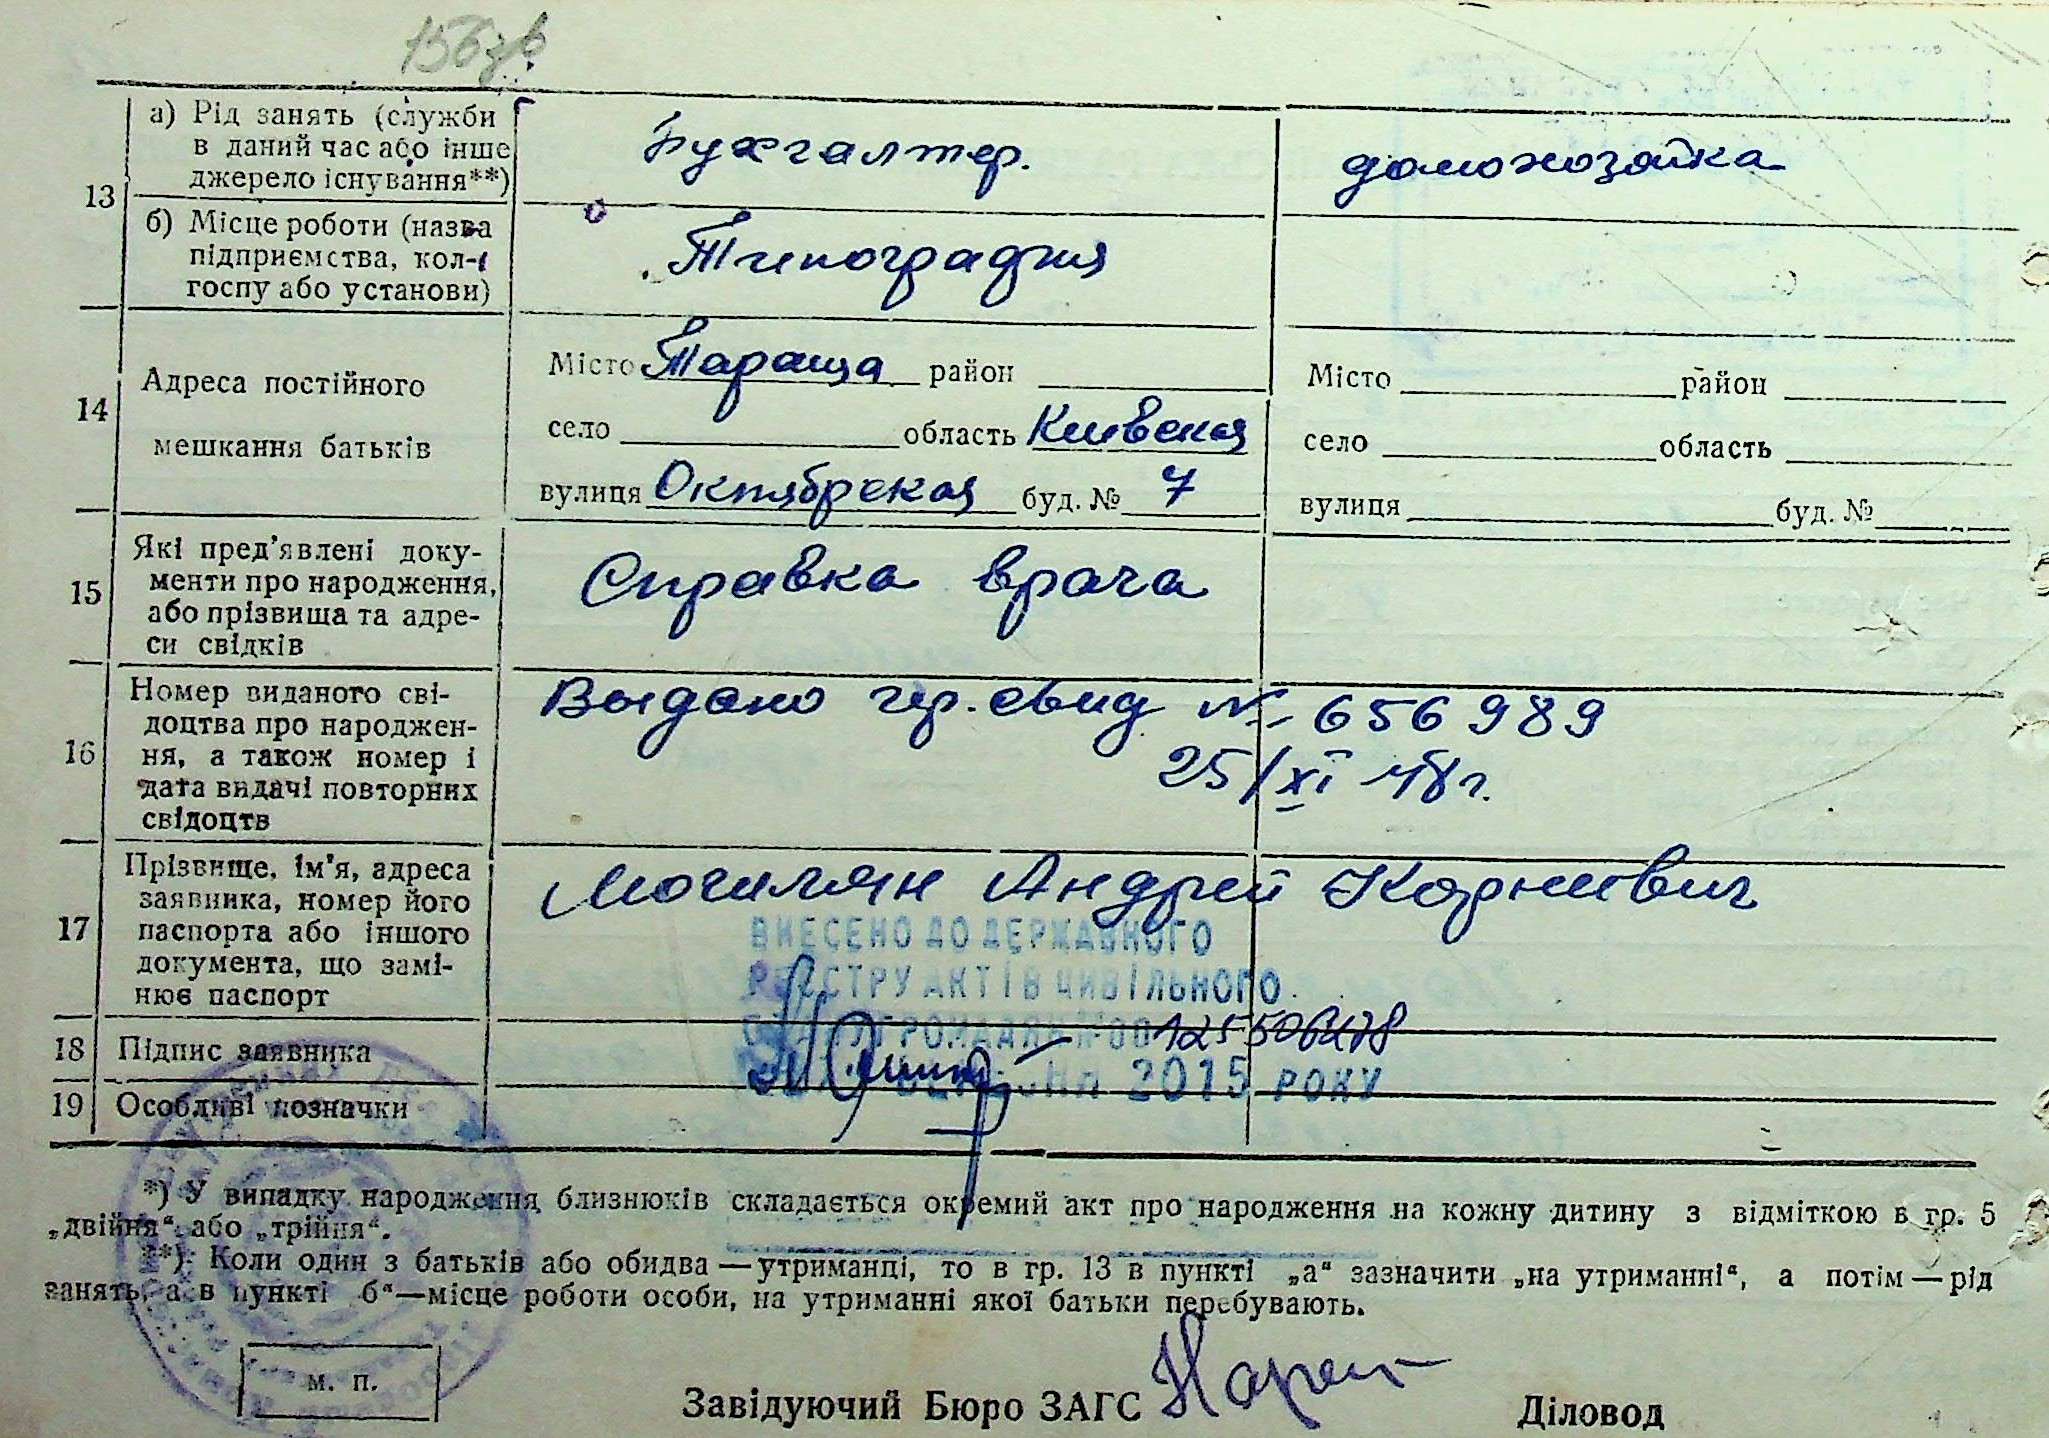 156зв
13
а) Рід занять (служби
в даний час або інше
джерело існування**)
Бухгалтер.
домохозайка
б) Місце роботи (назва
підприємства, кол-
госпу або установи)
Типография
14
Адреса постійного
мешкання батьків
Місто Тараща район
село область Киевская
вулиця Октябрская буд. № 7
Місто район
село область
вулиця буд. №
15
Які пред'явлені доку-
менти про народження,
або прізвища та адре-
си свідків
Справка врача
16
Номер виданого сві-
доцтва про народжен-
ня, а також номер і
дата видачі повторних
свідоцтв
Выдано гер. свид № 656989
25/XI 48 г.
17
Прізвище, ім'я, адреса
заявника, номер його
паспорта або іншого
документа, що замі-
нює паспорт
Могилян Андрей Корнеевич
ВНЕСЕНО ДО ДЕРЖАВНОГО
РЕЄСТРУ АКТІВ ЦИВІЛЬНОГО
ГРОМАДЯН №00
2015 РОКУ
18
Підпис заявника
19
Особливі позначки
*) У випадку народження близнюків складається окремий акт про народження на кожну дитину з відміткою в гр. 5
„двійня“ або „трійня“.
**) Коли один з батьків або обидва — утриманці, то в гр. 13 в пункті „а“ зазначити „на утриманні“, а потім — рід
занять, а в пункті „б“—місце роботи особи, на утриманні якої батьки перебувають.
м. п.
Завідуючий Бюро ЗАГС
Діловод